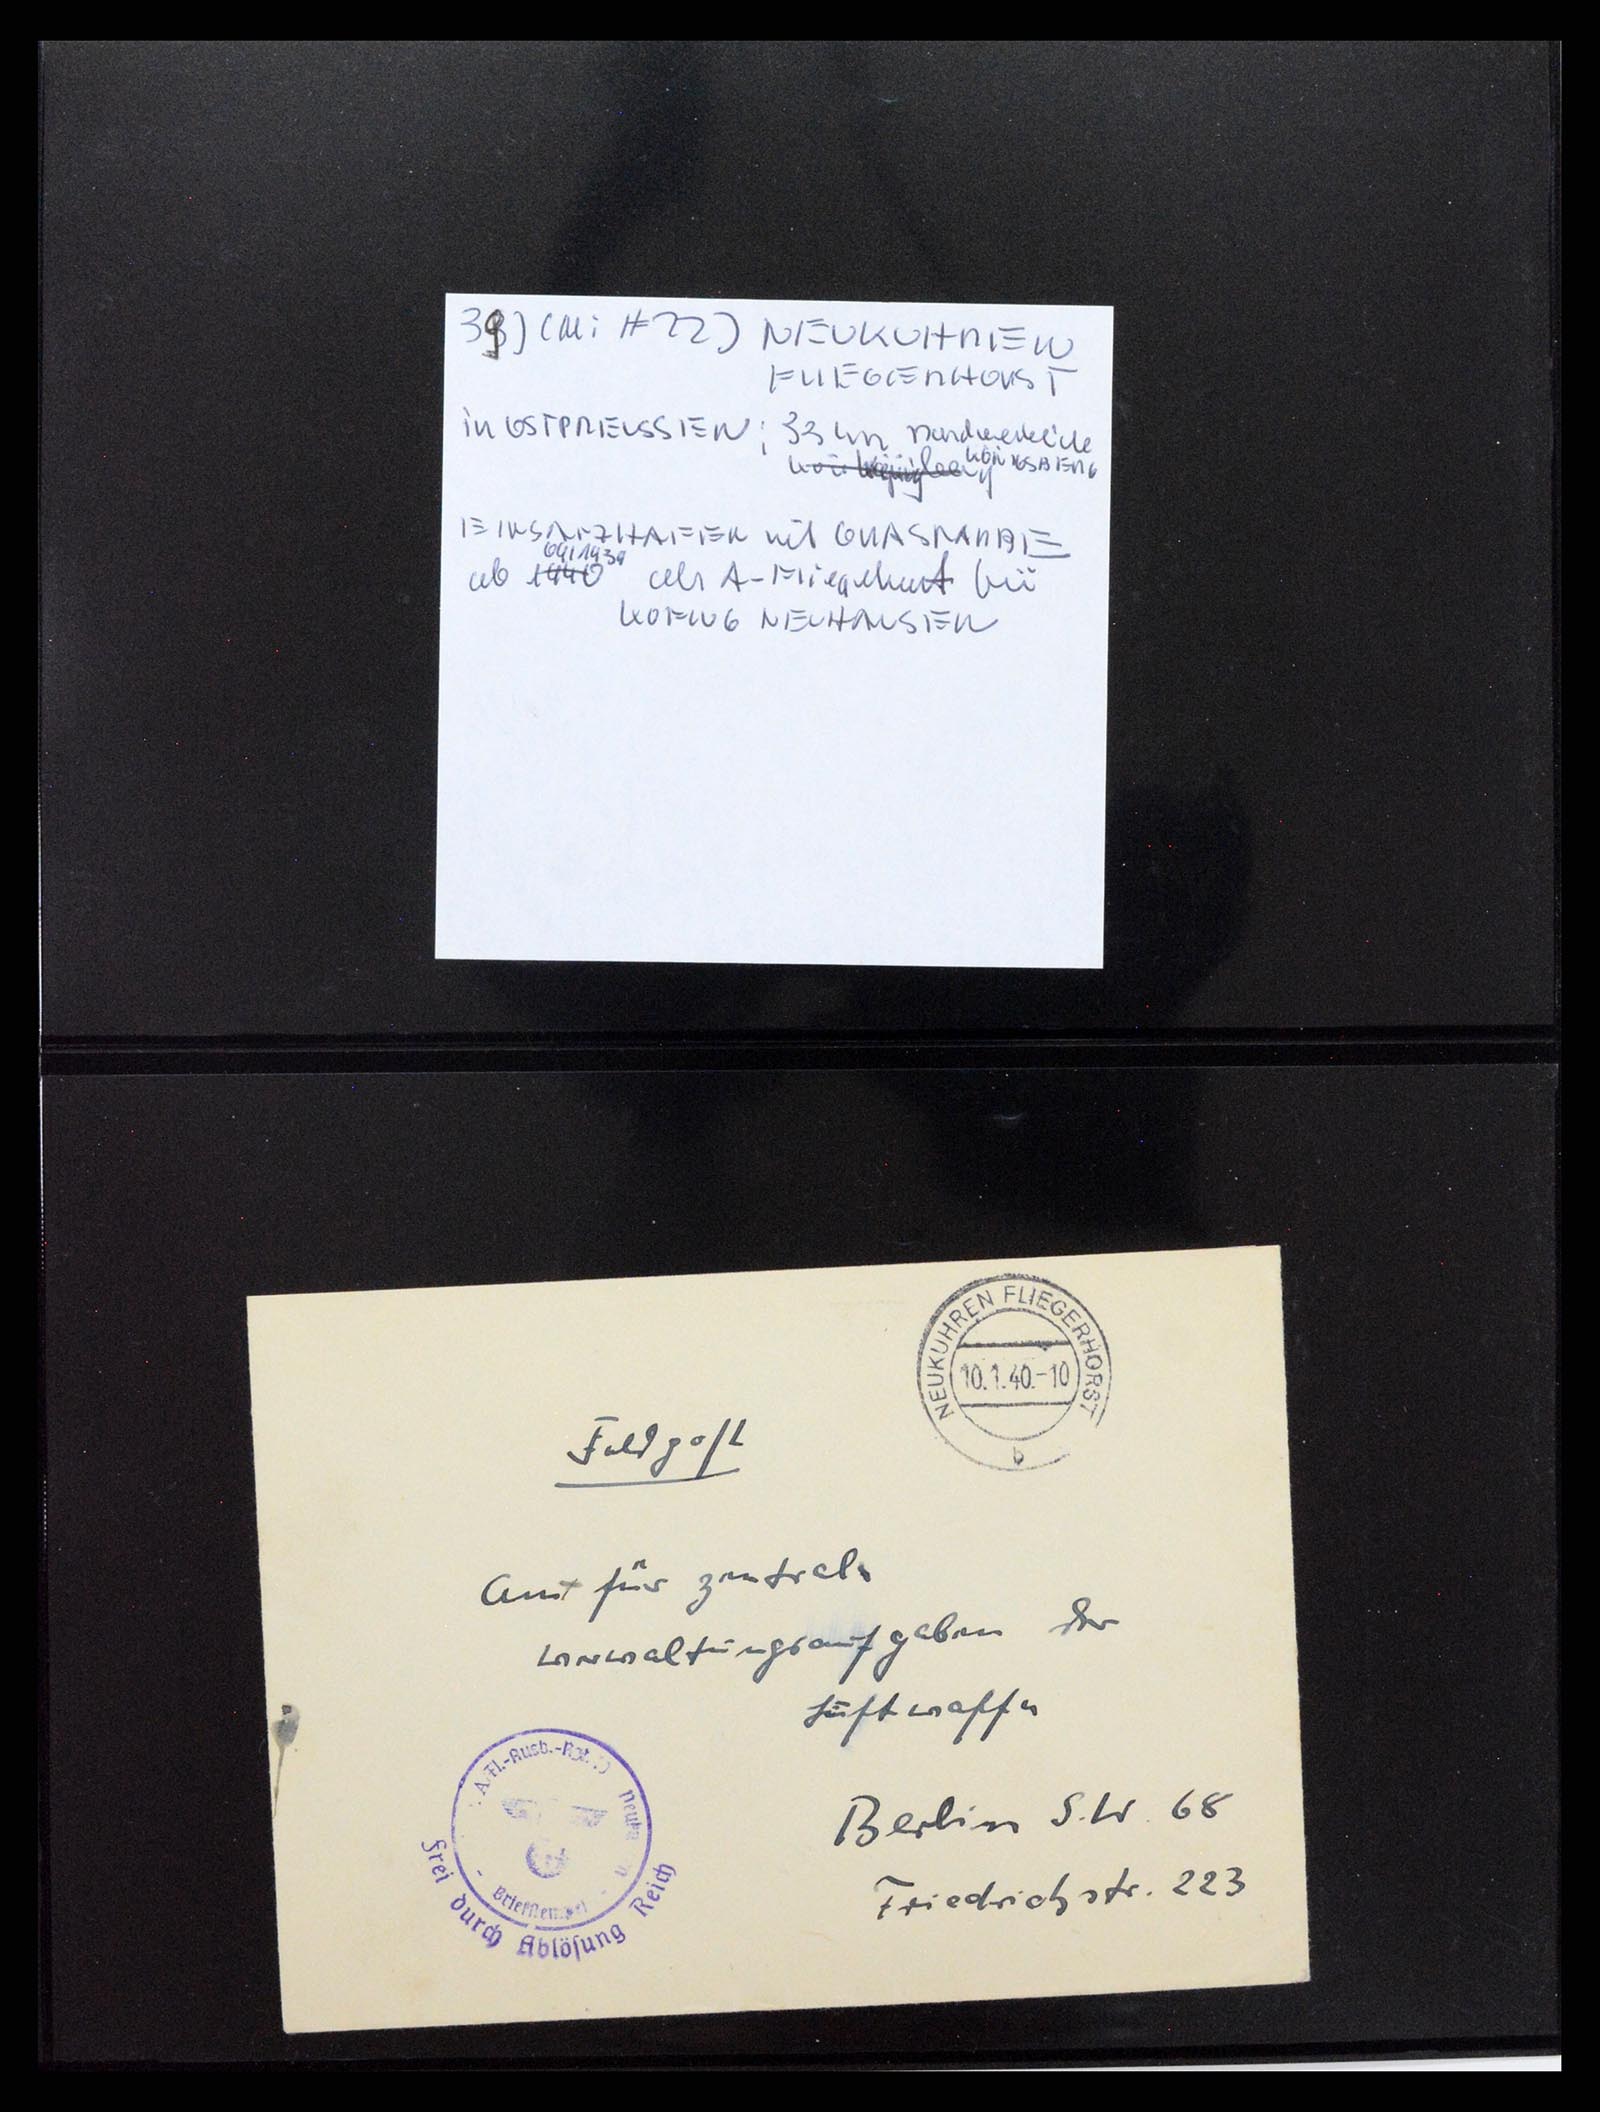 39) (Mi # 22) NEUKUHREN
FLIEGERHORST
in OSTPREUSSEN; 33 km
KÖNIGSBERG
EINSATZHAFEN mit GRASNARBE
04/1939
ab 1940 als A-Fliegerhorst bei
KOFLUG NEUHAUSEN
NEUKUHREN FLIEGERHORST
10.1.40.-10
b
Feldpost
Amt für zentrale
Verwaltungsaufgaben der
Luftwaffe
Berlin S.W. 68
Friedrichstr. 223
Fl.-Ausb.-Rgt.
Briefstempel
Frei durch Ablösung Reich